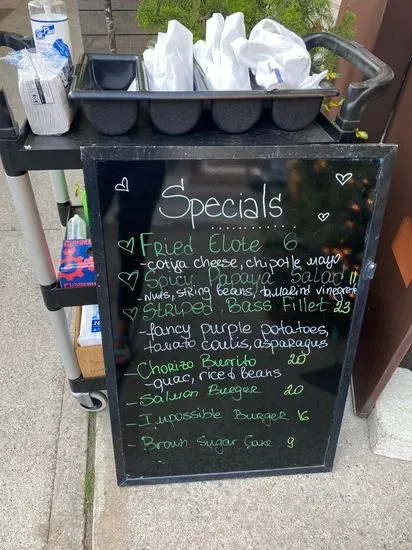 Specials
Fried Elote 6
-cotija cheese, chipotle mayo
Spicy Papaya Salad 11
-Nuts, string beans, tamarind vinegrete
Striped Bass Fillet 23
-fancy purple potatoes,
tomato coulis, asparagus
Chorizo Burrito 20
-guac, rice & beans
-Salmon Burger 20
-Impossible Burger 16
-Brown Sugar Cake 9